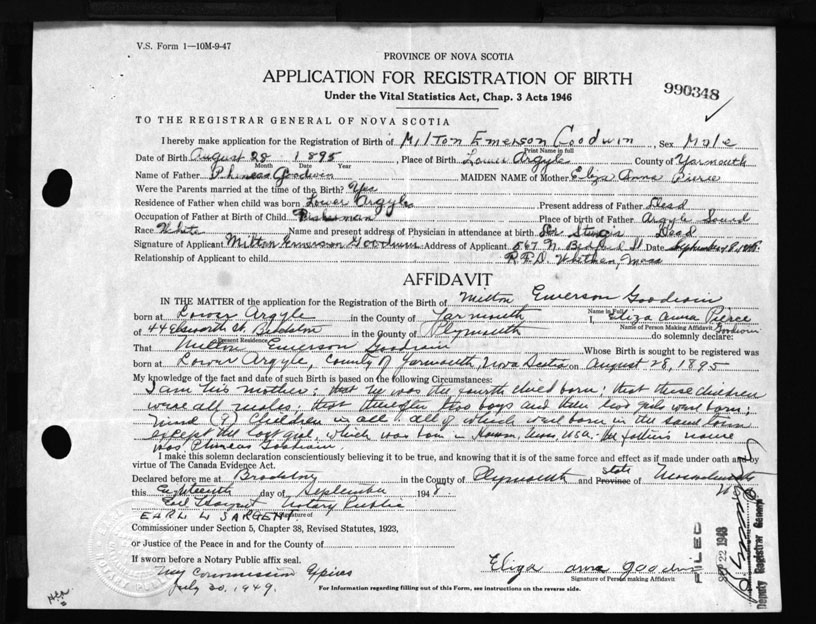 V.S. Form 1—10M-9-47
PROVINCE OF NOVA SCOTIA
APPLICATION FOR REGISTRATION OF BIRTH
990348
Under the Vital Statistics Act, Chap. 3 Acts 1946
TO THE REGISTRAR GENERAL OF NOVA SCOTIA
I hereby make application for the Registration of Birth of Milton Emerson Goodwin, Sex Male
Print Name in full
Date of Birth August 28 1895, Place of Birth Lower Argyle County of Yarmouth
Month Date Year
Name of Father Phineas Goodwin MAIDEN NAME of Mother Eliza Anna Pierce
Were the Parents married at the time of the Birth? Yes
Residence of Father when child was born Lower Argyle Present address of Father Dead
Occupation of Father at Birth of Child Fisherman Place of birth of Father Argyle Sound
Race White Name and present address of Physician in attendance at birth Dead
Signature of Applicant Milton Emerson Goodwin Address of Applicant 567 N. Bedford St. Date September
Relationship of Applicant to child R.F.D. Whitman, Mass
AFFIDAVIT
IN THE MATTER of the application for the Registration of the Birth of Milton Emerson Goodwin
Name in Full
born at Lower Argyle in the County of Yarmouth I, Eliza Anna Pierce
Name of Person Making Affidavit Goodwin
of 44 Ellsworth St. Brockton in the County of Plymouth do solemnly declare:
Present Residence
That Milton Emerson Goodwin Whose Birth is sought to be registered was
born at Lower Argyle, County of Yarmouth, Nova Scotia on August 28, 1895
My knowledge of the fact and date of such Birth is based on the following Circumstances:
I am his mother; that he was the fourth child born; that these children
were all males, that thereafter two boys and then two girls were born;
(9) Children in all; all of which were born in the same town
except the last girl, which was born in USA. father's name
was Phineas Goodwin
I make this solemn declaration conscientiously believing it to be true, and knowing that it is of the same force and effect as if made under oath and by
virtue of The Canada Evidence Act.
Declared before me at Brockton in the County of Plymouth and Province State of Massachusetts
this Eighteenth day of September 1948.
Earl Sargent Notary Public
EARL W SARGENT
Signature of
Commissioner under Section 5, Chapter 38, Revised Statutes, 1923,
or Justice of the Peace in and for the County of
If sworn before a Notary Public affix seal.
My Commission Expires
July 20, 1949.
Eliza Anna Goodwin
Signature of Person making Affidavit
For Information regarding filling out of this Form, see instructions on the reverse side.
FILED
SEP 22 1948
Deputy Registrar General